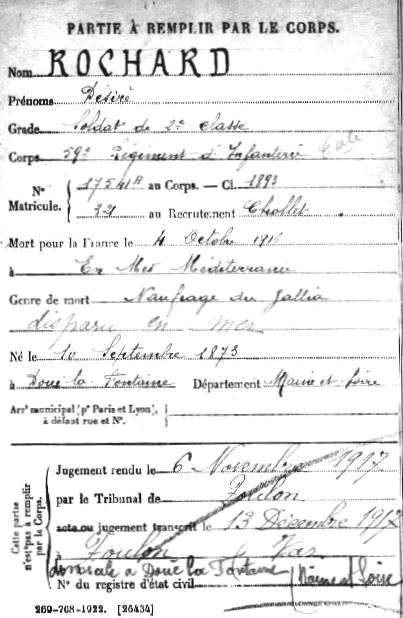 PARTIE À REMPLIR PAR LE CORPS.
Nom ROCHARD
Prénoms Désiré
Grade Soldat de 2e classe
Corps 59e Régiment d'Infanterie
N° Matricule. 17541A au Corps. — Cl. 1893
221 au Recrutement Chollet
Mort pour la France le 4 Octobre 1916
à En Mer Méditerranée
Genre de mort Naufrage du Gallia
disparu en mer
Né le 10 Septembre 1873
à Doué la Fontaine Département Maine et Loire
Arrt municipal (pr Paris et Lyon), à défaut rue et N°.
Cette partie n'est pas à remplir par le Corps.
Jugement rendu le 6 Novembre 1917
par le Tribunal de Toulon
acte ou jugement transcrit le 13 Décembre 1917
à Toulon Var
domicilié à Doué la Fontaine (Maine et Loire
N° du registre d'état civil
269-708-1922. [26434]